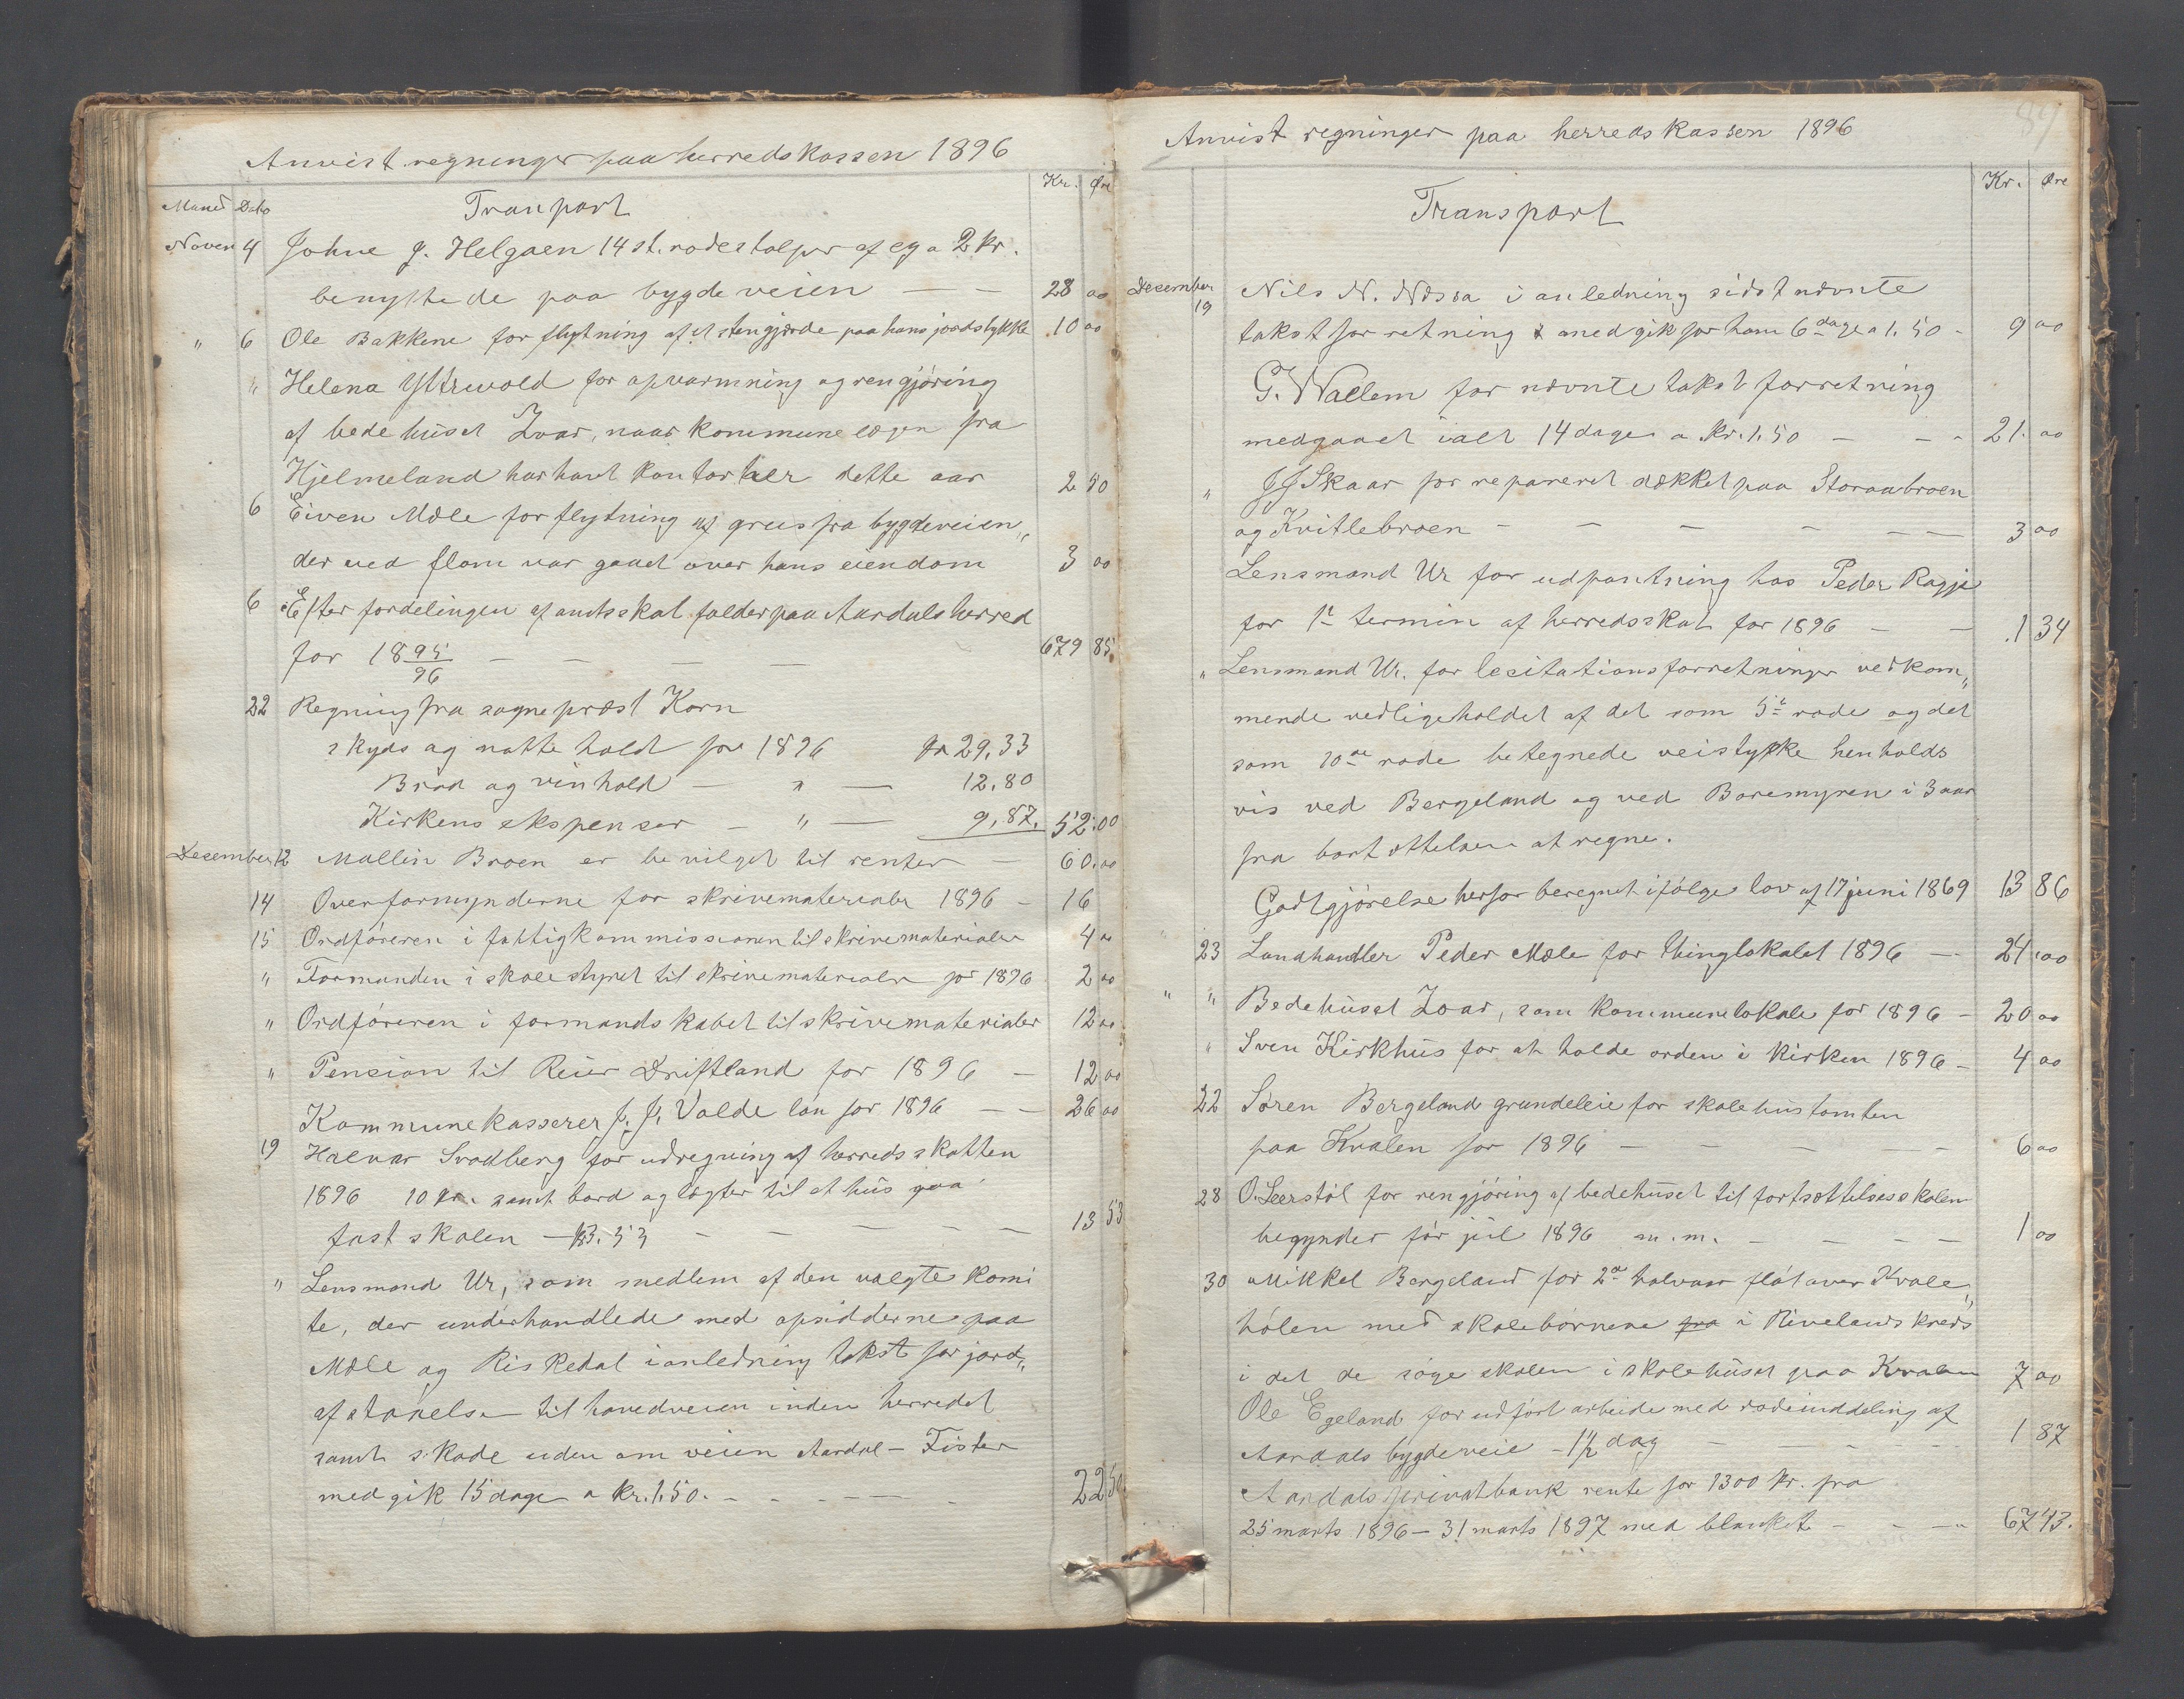 Anvist regninger paa herredskassen 1896
Kr. Øre
Maned Dato Tranport
Novem 4 Johne J. Helgaen 14 st. rodestolper af eg a 2 kr.
benyttede paa bygdeveien — — 28 00
" 6 Ole Bakkene for flytning af et stengjærde paa hans jordstykke 10 00
" Helena Ystrevold for opvarmning og rengjøring
af bedehuset Zoar, naar kommunelægen fra
Hjelmeland har havt kontor her dette aar 2 50
6 Eiven Mæle for flytning af grus fra bygdeveien,,
der ved flom var gaaet over hans eiendom 3 00
6 Efter fordelingen af amtsskat falder paa Aardals herred
for 1895/96 — — — — 679 85
22 Regning fra sogneprest Korn
skyds og natte hold for 1896 kr 29,33
Brød og vinhold — " — 12,80
Kirkens ekspenser — " — 9,87. 52.00
Desember 12 Mallin Broen er bevilget til renter — 60.00
14 Overformynderne for skrivematerialer 1896 — 16
15 Ordføreren i fattigkommissionen til skrivematerialer 4 00
" Formanden i skolestyret til skrivematerialer for 1896 2 00
" Ordføreren i formandskabet til skrivematerialer 12 00
" Pension til Reier Driftland for 1896 — 12 00
Kommunekasserer J. J. Valde løn for 1896 — — 26 00
19 Halvar Svadberg for udregning af herredsskatten
1896 10 kr. samt bord og lægter til et hus paa
fastskolen — kr3.53 — — — — — 13 53
" Lensmand Ur, som medlem af den valgte komi
te, der underhandlede med opsidderne paa
Mæle og Riskedal i anledning takst for jord,,
afstaaelse til hovedveien inden herredet
samt skade uden om veien Aardal – Fister
medgik 15 dage a kr. 1.50. — — — — 22 50
Anvist regninger paa herredskassen 1896
89
Kr. Øre
Transport
Desember 19 Nils N. Nessa i anledning sidst nævnte
takstforretning medgik for ham 6 dage a 1.50 - 9 00
G. Wallem for nævnte takst forretning
medgaaet ialt 14 dage a kr. 1,50 — — - 21. 00
" JJ Skaar for repareret dækket paa Storaabroen
og Kvitlebroen — — — — — — 3 00
Lensmand Ur for udpantning hos Peder Ragje
for 1ste termin af herredsskat for 1896 — — .1 34
" Lensmand Ur. for lesitationsforretninger vedkom,,
mende vedligeholdet af det som 5te rode og det
som 10de rode betegnede veistykke henholds
vis ved Bergeland og ved Boremyren i 3 aar
fra bortsættelsen at regne.
Godtgjørelse herfor beregnet ifølge lov af 17 juni 1869 13 86
23 Landhandler Peder Mæle for thinglokalet 1896 — 24.00
" " Bedehuset Zoar, som kommunelokale for 1896 — 20 00
" Sven Kirkhus for at holde orden i kirken 1896 — 4 00
22 Søren Bergeland grundeleie for skolehustomten
paa Kvalen for 1896 — — — — — 6 00
28 O. Leerstøl for rengjøring af bedehuset til fortsættelsesskolen
begynder før jul 1896 m.m. — — — — 1 00
30 Mikkel Bergeland for 2det halvaar fløt over Kvale,,
hølen med skolebørnene fra i Rivelands kreds
i det de søge skolen i skolehuset paa Kvalen 7 00
Ole Egeland for udført arbeide med rodeinddeling af
Aardals bygdeveie – 1½ dag — — — — 1 87
Aardals privatbank rente for 1300 kr. fra
25 marts 1896 – 31 marts 1897 med blanket — — — 67 43.